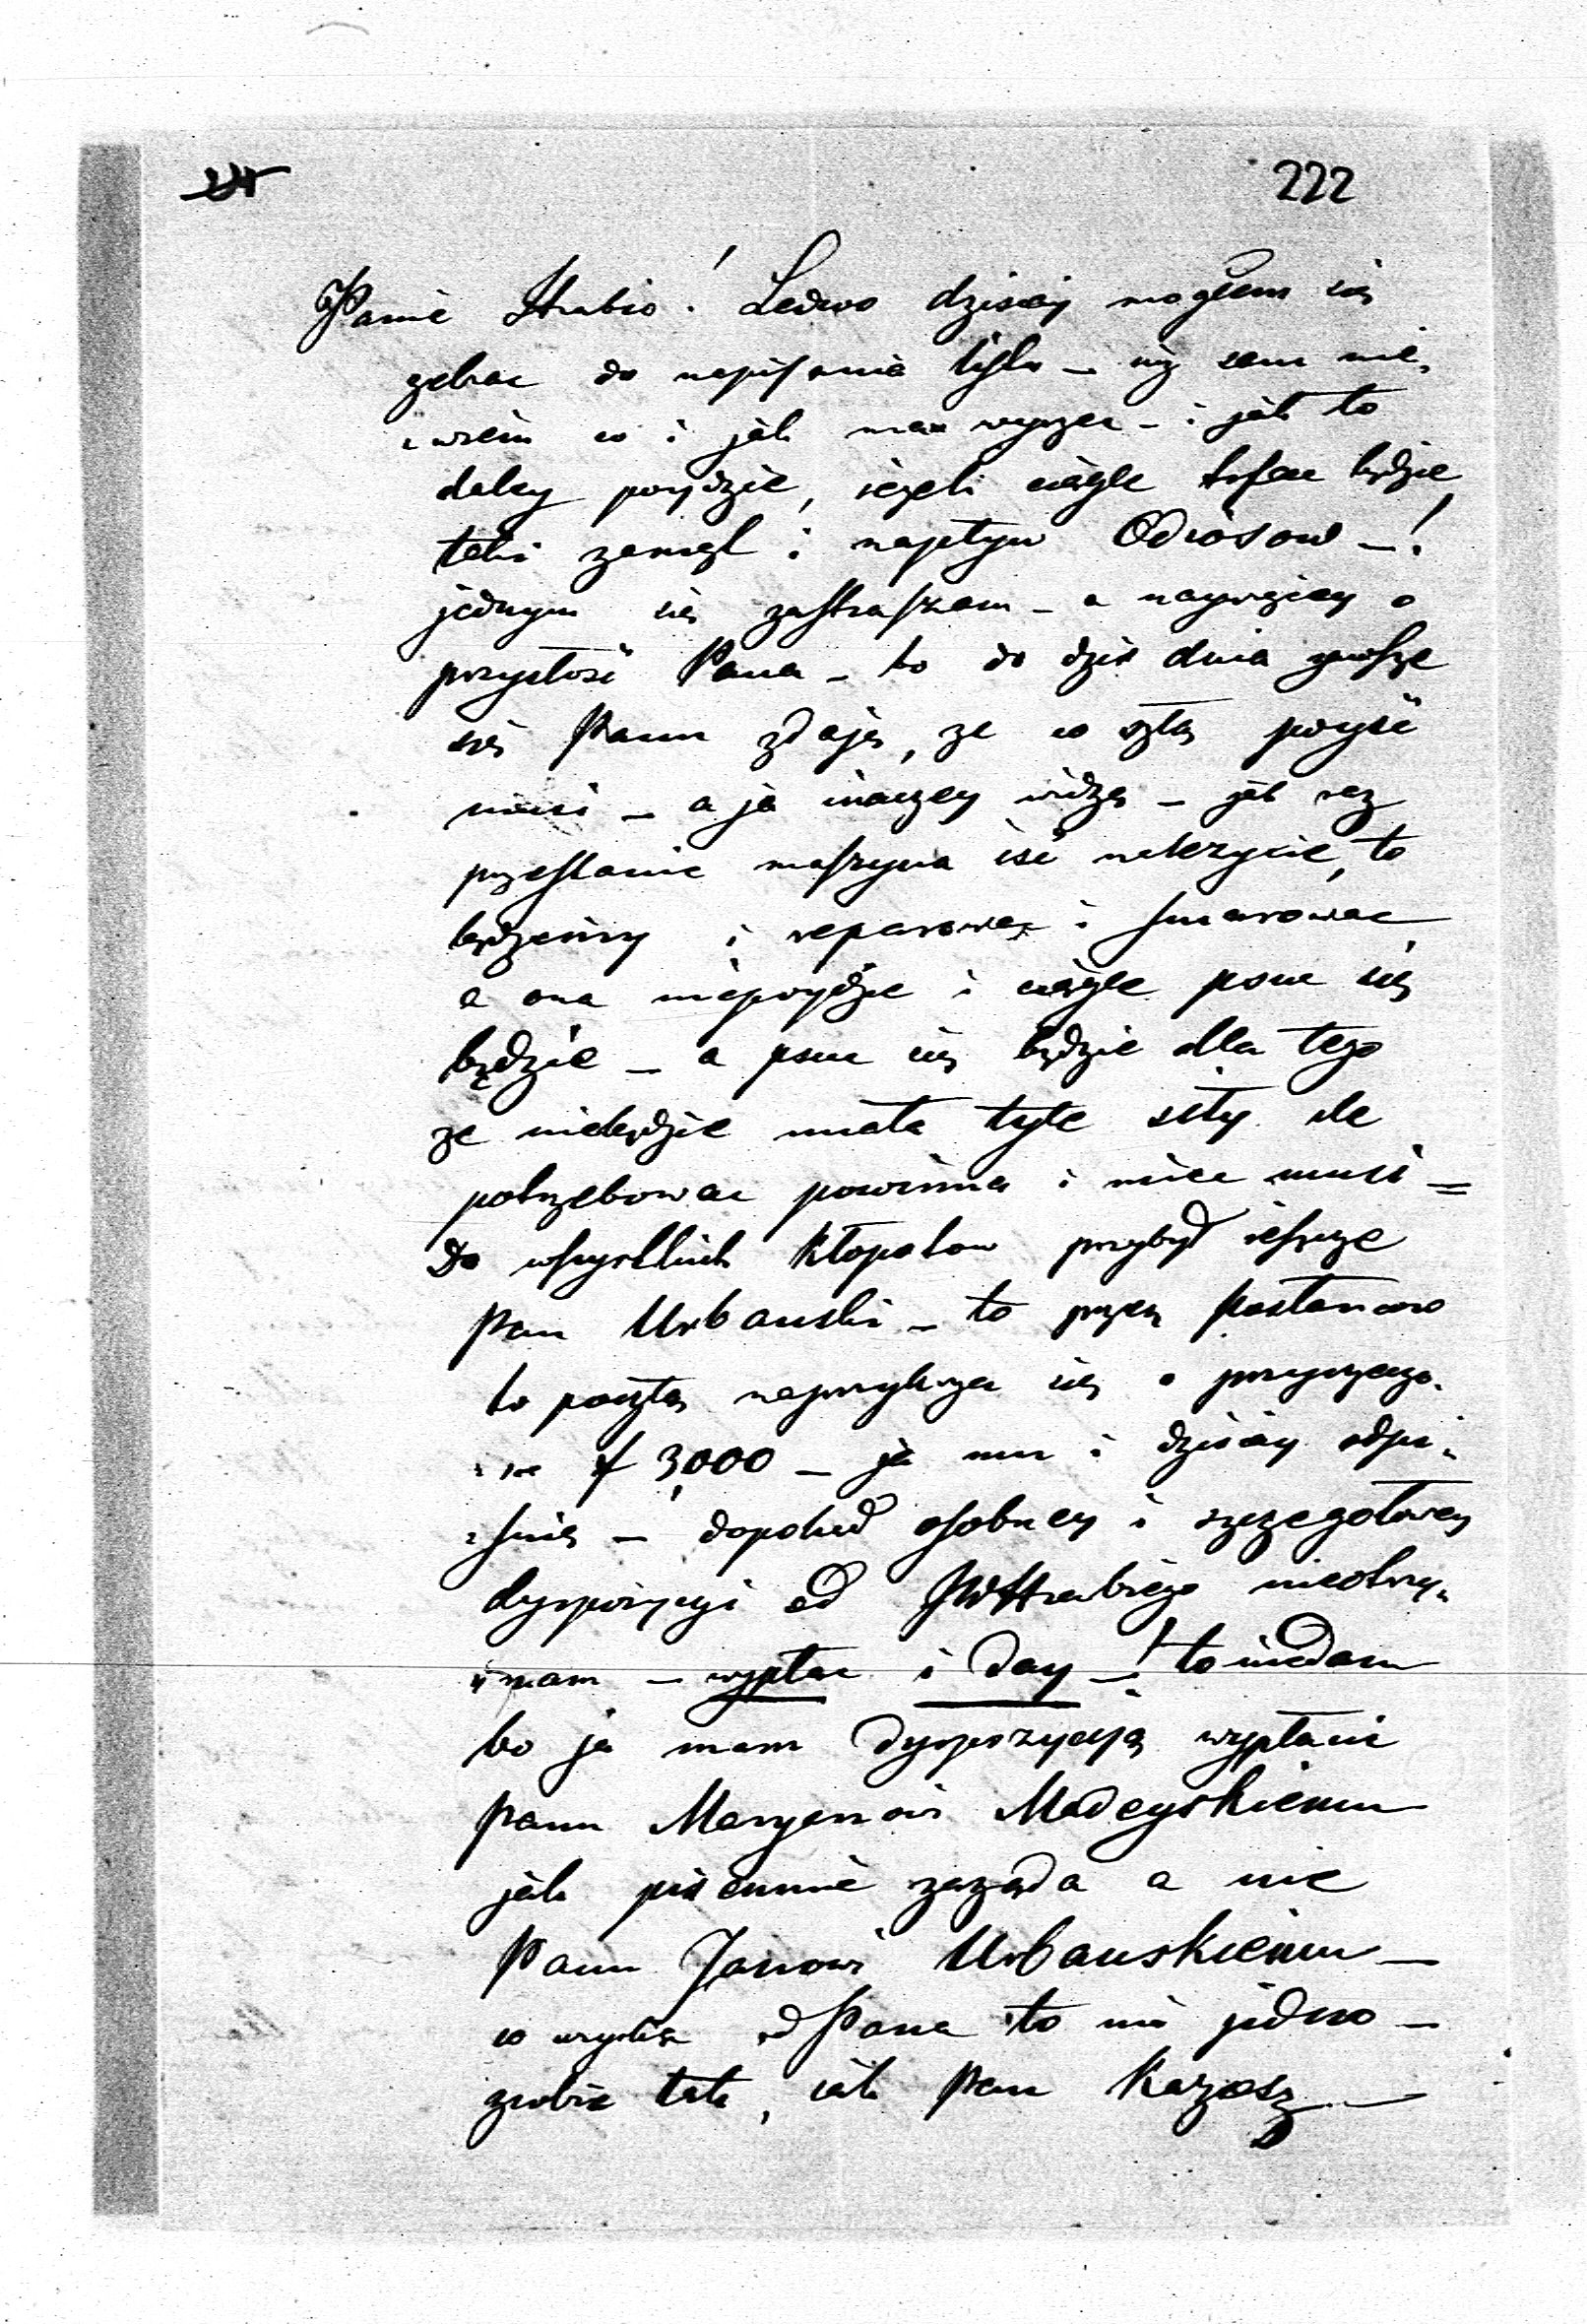 222
Panie Hrabio! Ledwo dzisiay mogłem się
zebrac do napisania listu – niż sam nie
wiem co i jak mam wyrzec – i jak to
daley poydzie, ieżeli ciągle trfac będzie
taki zamęt i napływ Odiosow –!
jednym się zastraszam – a naywięcey o
przyszłość Pana – to do dziś dnia
się Panu zdaje, ze co szło poyść
musi – a ja inaczey widzę – jak raz
przestanie maszyna iść należycie, to
będziemy i reparować i smarowac
a ona niepoydzie i ciągle psuc się
będzie – a psuc się będzie dla tego
ze niebędzie miała tyle siły ile
potrzebowac powinna i miec musi =
Do wszystkich kłopotow przybył ieszcze
Pan Urbanski – to przez posłancow
to pocztą naprzykrza się o
f 3,000 – ja mu i dzisiay odpi
snię – dopokąd osobney i szczegołowey
dyspozycyi od JWHrabiego nieotrzy
mam – wypłac i day –! to niedam
bo ja mam dyspozycyją wypłacić
panu Maryanowi Madeyskiemu
jak pisemnie zarząda a nie
Panu Janowi Urbanskiemu –
co uzyska od Pana to mi jedno –
zrobię tak, iak Pan Każesz –